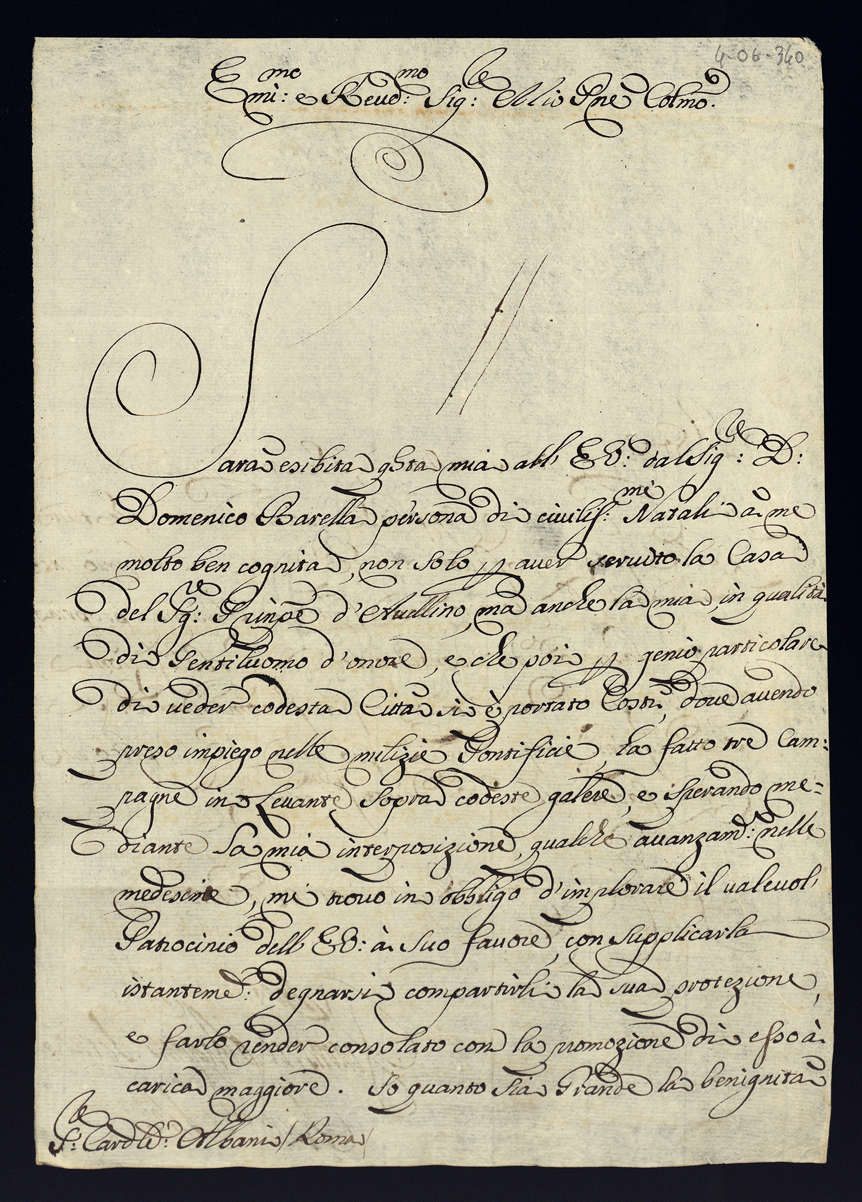 4-06-340
Em.mo e Reud.mo Sig.re Mio Pne Colmo.
Sarà esibita qsta mia all' E.V: dal Sig.re D:
Domenico Barella persona di civiliss.mi Natali à me
molto ben cognita, non solo p aver servito la Casa
del Sig.re Prinpe d'Avellino, ma anche la mia in qualità
di Gentiluomo d'onore, e che poi p genio particolare
di veder codesta Città si è portato Costì, dove avendo
preso impiego nelle milizie Pontificie, ha fatto tre Cam:
pagne in Levante sopra codeste galere, e sperando me=
diante la mia interposizione, qualche avanzam.to nelle
medesime, mi trovo in obbligo d'implorare il valevol'
Patrocinio dell' E.V: à suo favore, con supplicarla
istanteme: degnarsi compartirli la sua protezione,
e farlo render consolato con la promozione di esso à
carica maggiore. So quanto sia Grande la benignità
S.re Cardle Albani / Roma /